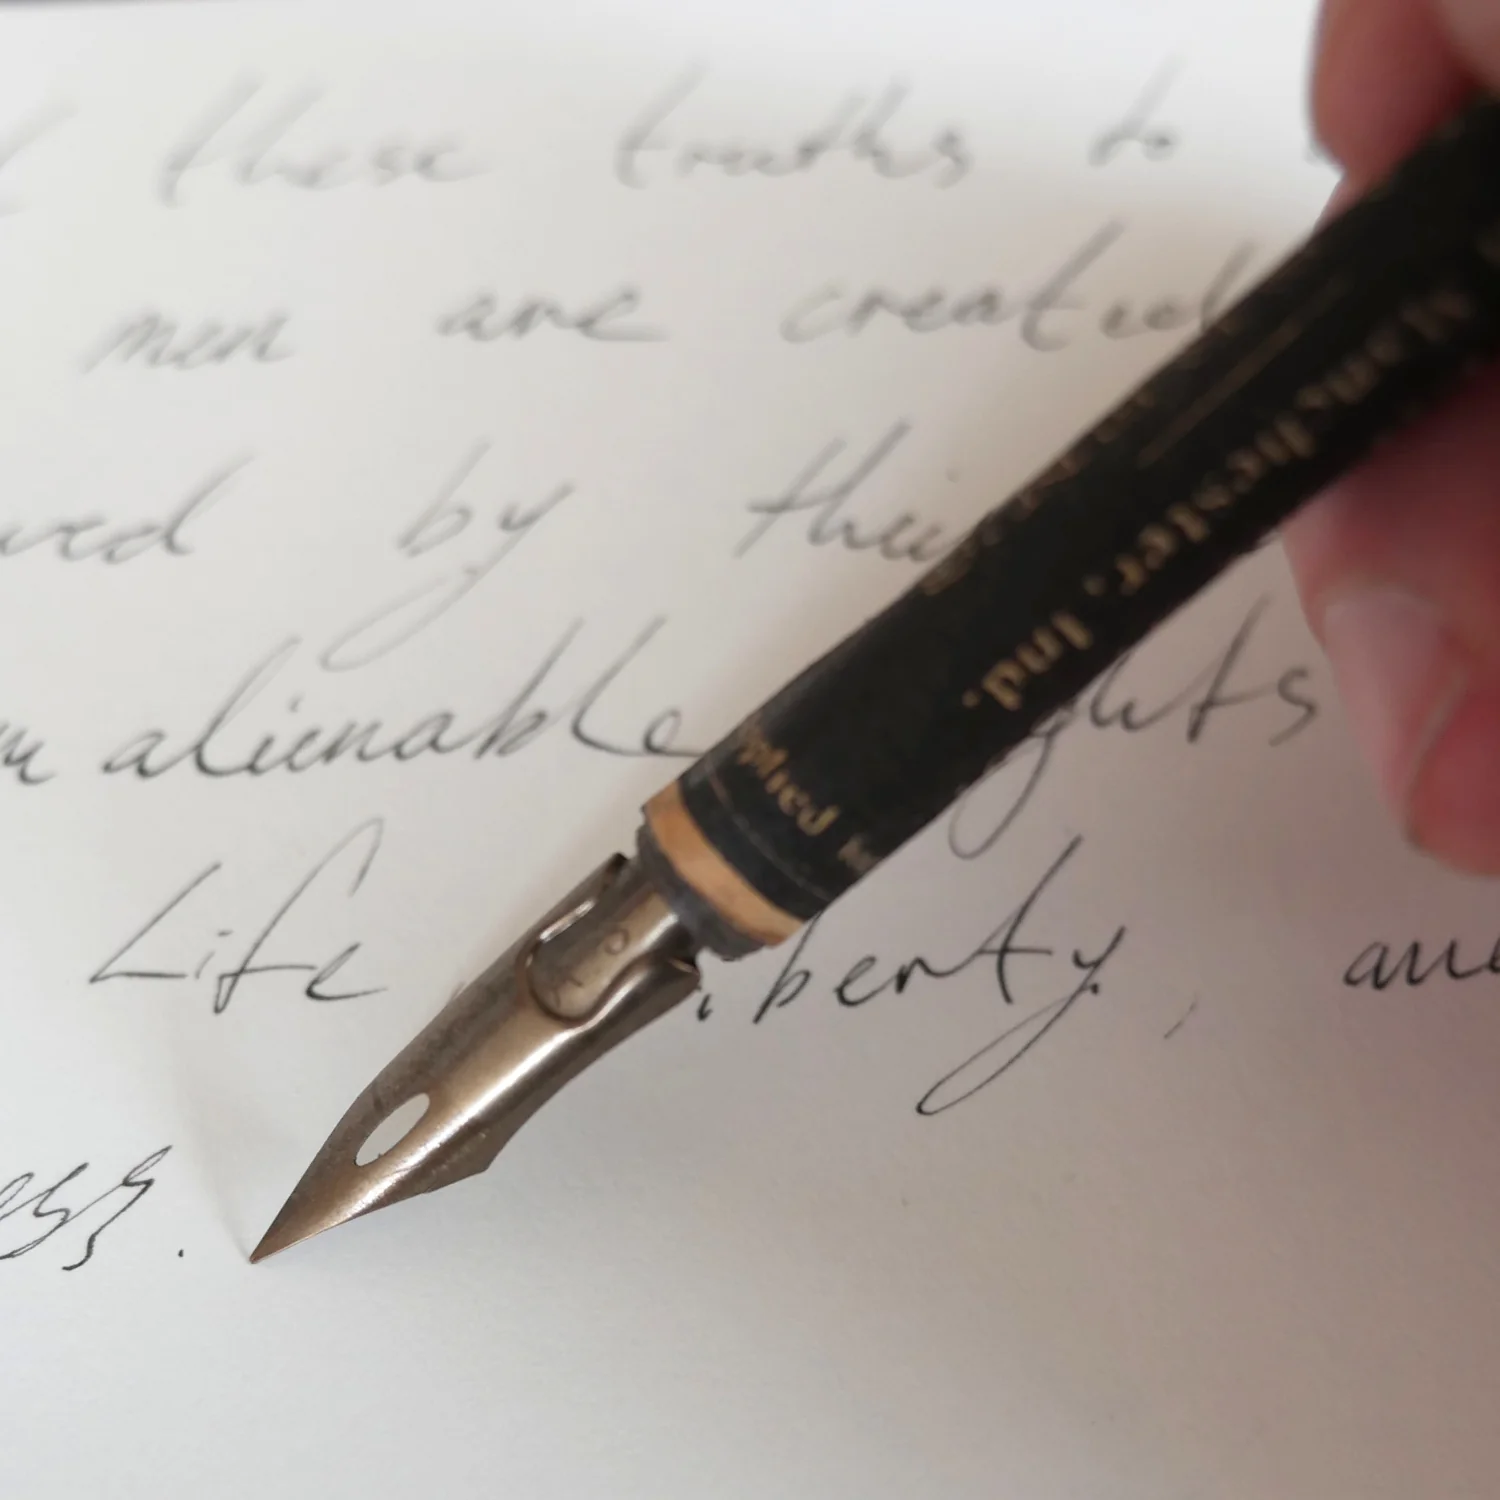 these truths to
men are created
by their
unalienable rights
Life Liberty, and
ess.
Manchester, Ind.